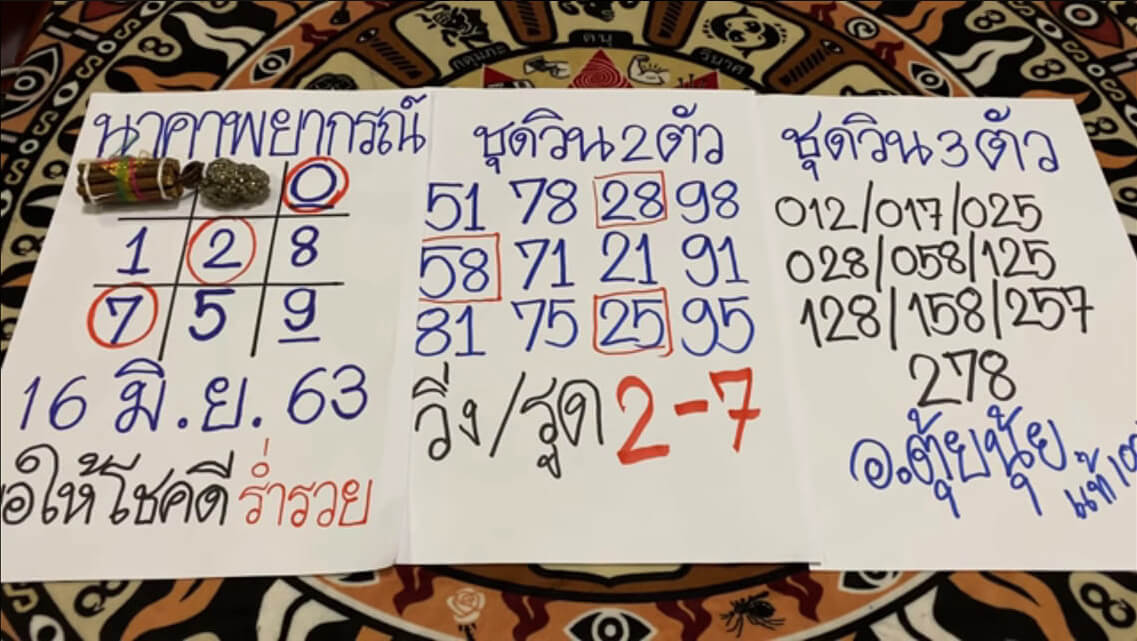 กตุมภะ
ธนู
วินาศ
นาคาพยากรณ์
0
1 2 8
7 5 9
16 มิ.ย. 63
ขอให้โชคดี ร่ำรวย
ชุดวิน 2 ตัว
51 78 28 98
58 71 21 91
81 75 25 95
วิ่ง/รูด 2-7
ชุดวิน 3 ตัว
012/017/025
028/058/125
128/158/257
278
อ.ตุ้ยนุ้ย